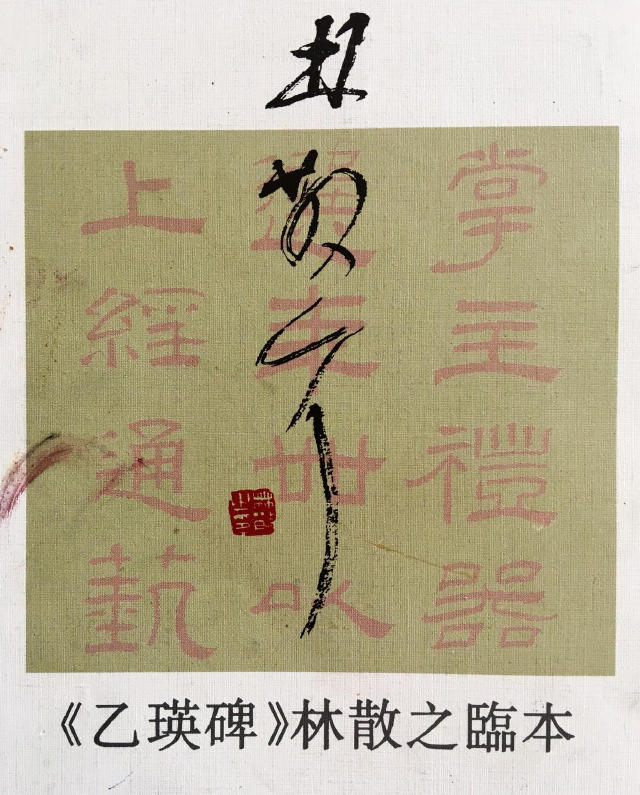 林散耳
掌主禮器
選年卌以
上經通藝
《乙瑛碑》林散之臨本